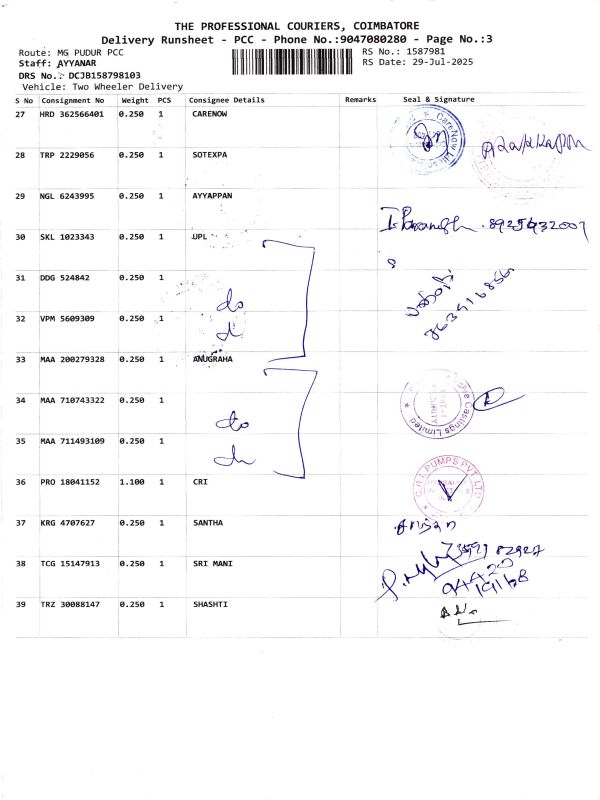 THE PROFESSIONAL COURIERS, COIMBATORE
Delivery Runsheet - PCC - Phone No.:9047080280 - Page No.:3
Route: MG PUDUR PCC RS No.: 1587981
Staff: AYYANAR RS Date: 29-Jul-2025
DRS No.: DCJB158798103
Vehicle: Two Wheeler Delivery
S No Consignment No Weight PCS Consignee Details Remarks Seal & Signature
27 HRD 362566401 0.250 1 CARENOW
28 TRP 2229056 0.250 1 SOTEXPA
29 NGL 6243995 0.250 1 AYYAPPAN
30 SKL 1023343 0.250 1 UPL
31 DDG 524842 0.250 1
do
32 VPM 5609309 0.250 1
33 MAA 200279328 0.250 1 ANUGRAHA
34 MAA 710743322 0.250 1
do
35 MAA 711493109 0.250 1
36 PRO 18041152 1.100 1 CRI
C.R.I. PUMPS PVT LTD
37 KRG 4707627 0.250 1 SANTHA
38 TCG 15147913 0.250 1 SRI MANI
39 TRZ 30088147 0.250 1 SHASHTI